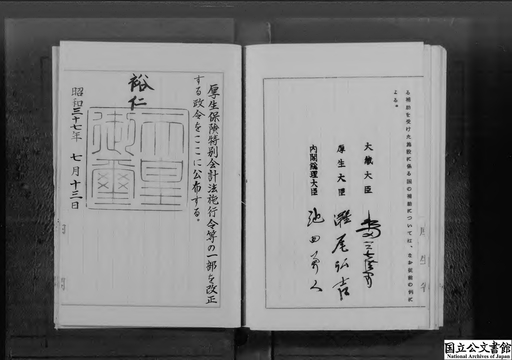 る補助を受けた施設に係る国の補助については、なお従前の例に
よる。
大蔵大臣
厚生大臣 灘尾弘吉
内閣総理大臣 池田勇人
厚生保険特別会計法施行令等の一部を改正
する政令をここに公布する。
裕仁
天皇
御璽
昭和三十七年 七月十三日
国立公文書館
National Archives of Japan